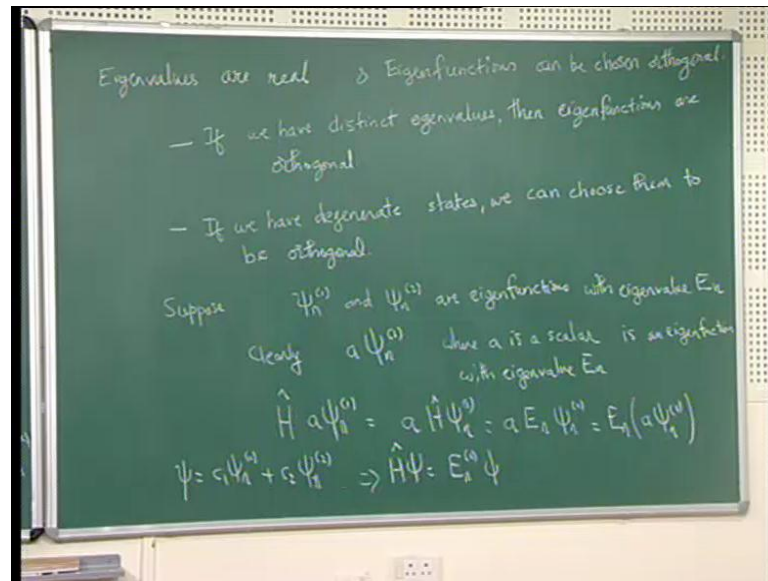 Eigenvalues are real & Eigenfunctions can be chosen orthogonal.
— If we have distinct egenvalues, then eigenfunctions are
orthogonal
— If we have degenerate states, we can choose them to
be orthogonal.
Suppose ψₙ⁽¹⁾ and ψₙ⁽²⁾ are eigenfunctions with eigenvalue Eₙ
Clearly a ψₙ⁽¹⁾ where a is a scalar is an eigenfuction
with eigenvalue Eₙ
Ĥ aψₙ⁽¹⁾ = a Ĥψₙ⁽¹⁾ = a Eₙ ψₙ⁽¹⁾ = Eₙ(aψₙ⁽¹⁾)
ψ = c₁ψₙ⁽¹⁾ + c₂ψₙ⁽²⁾ ⇒ Ĥψ = Eₙ⁽¹⁾ ψ